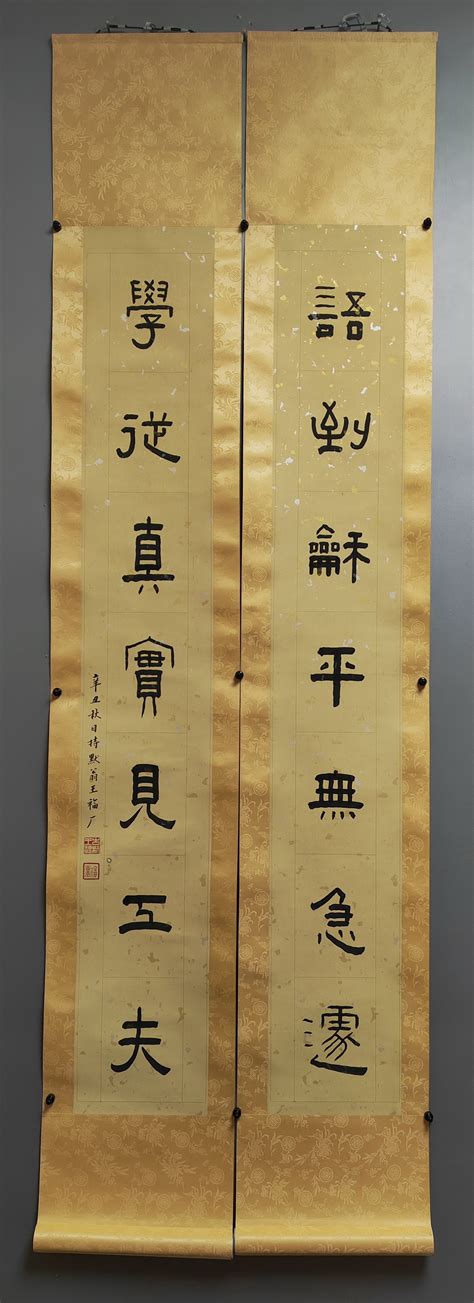 語到龢平無急遽
學從真實見工夫
辛丑秋日持默翁王福厂